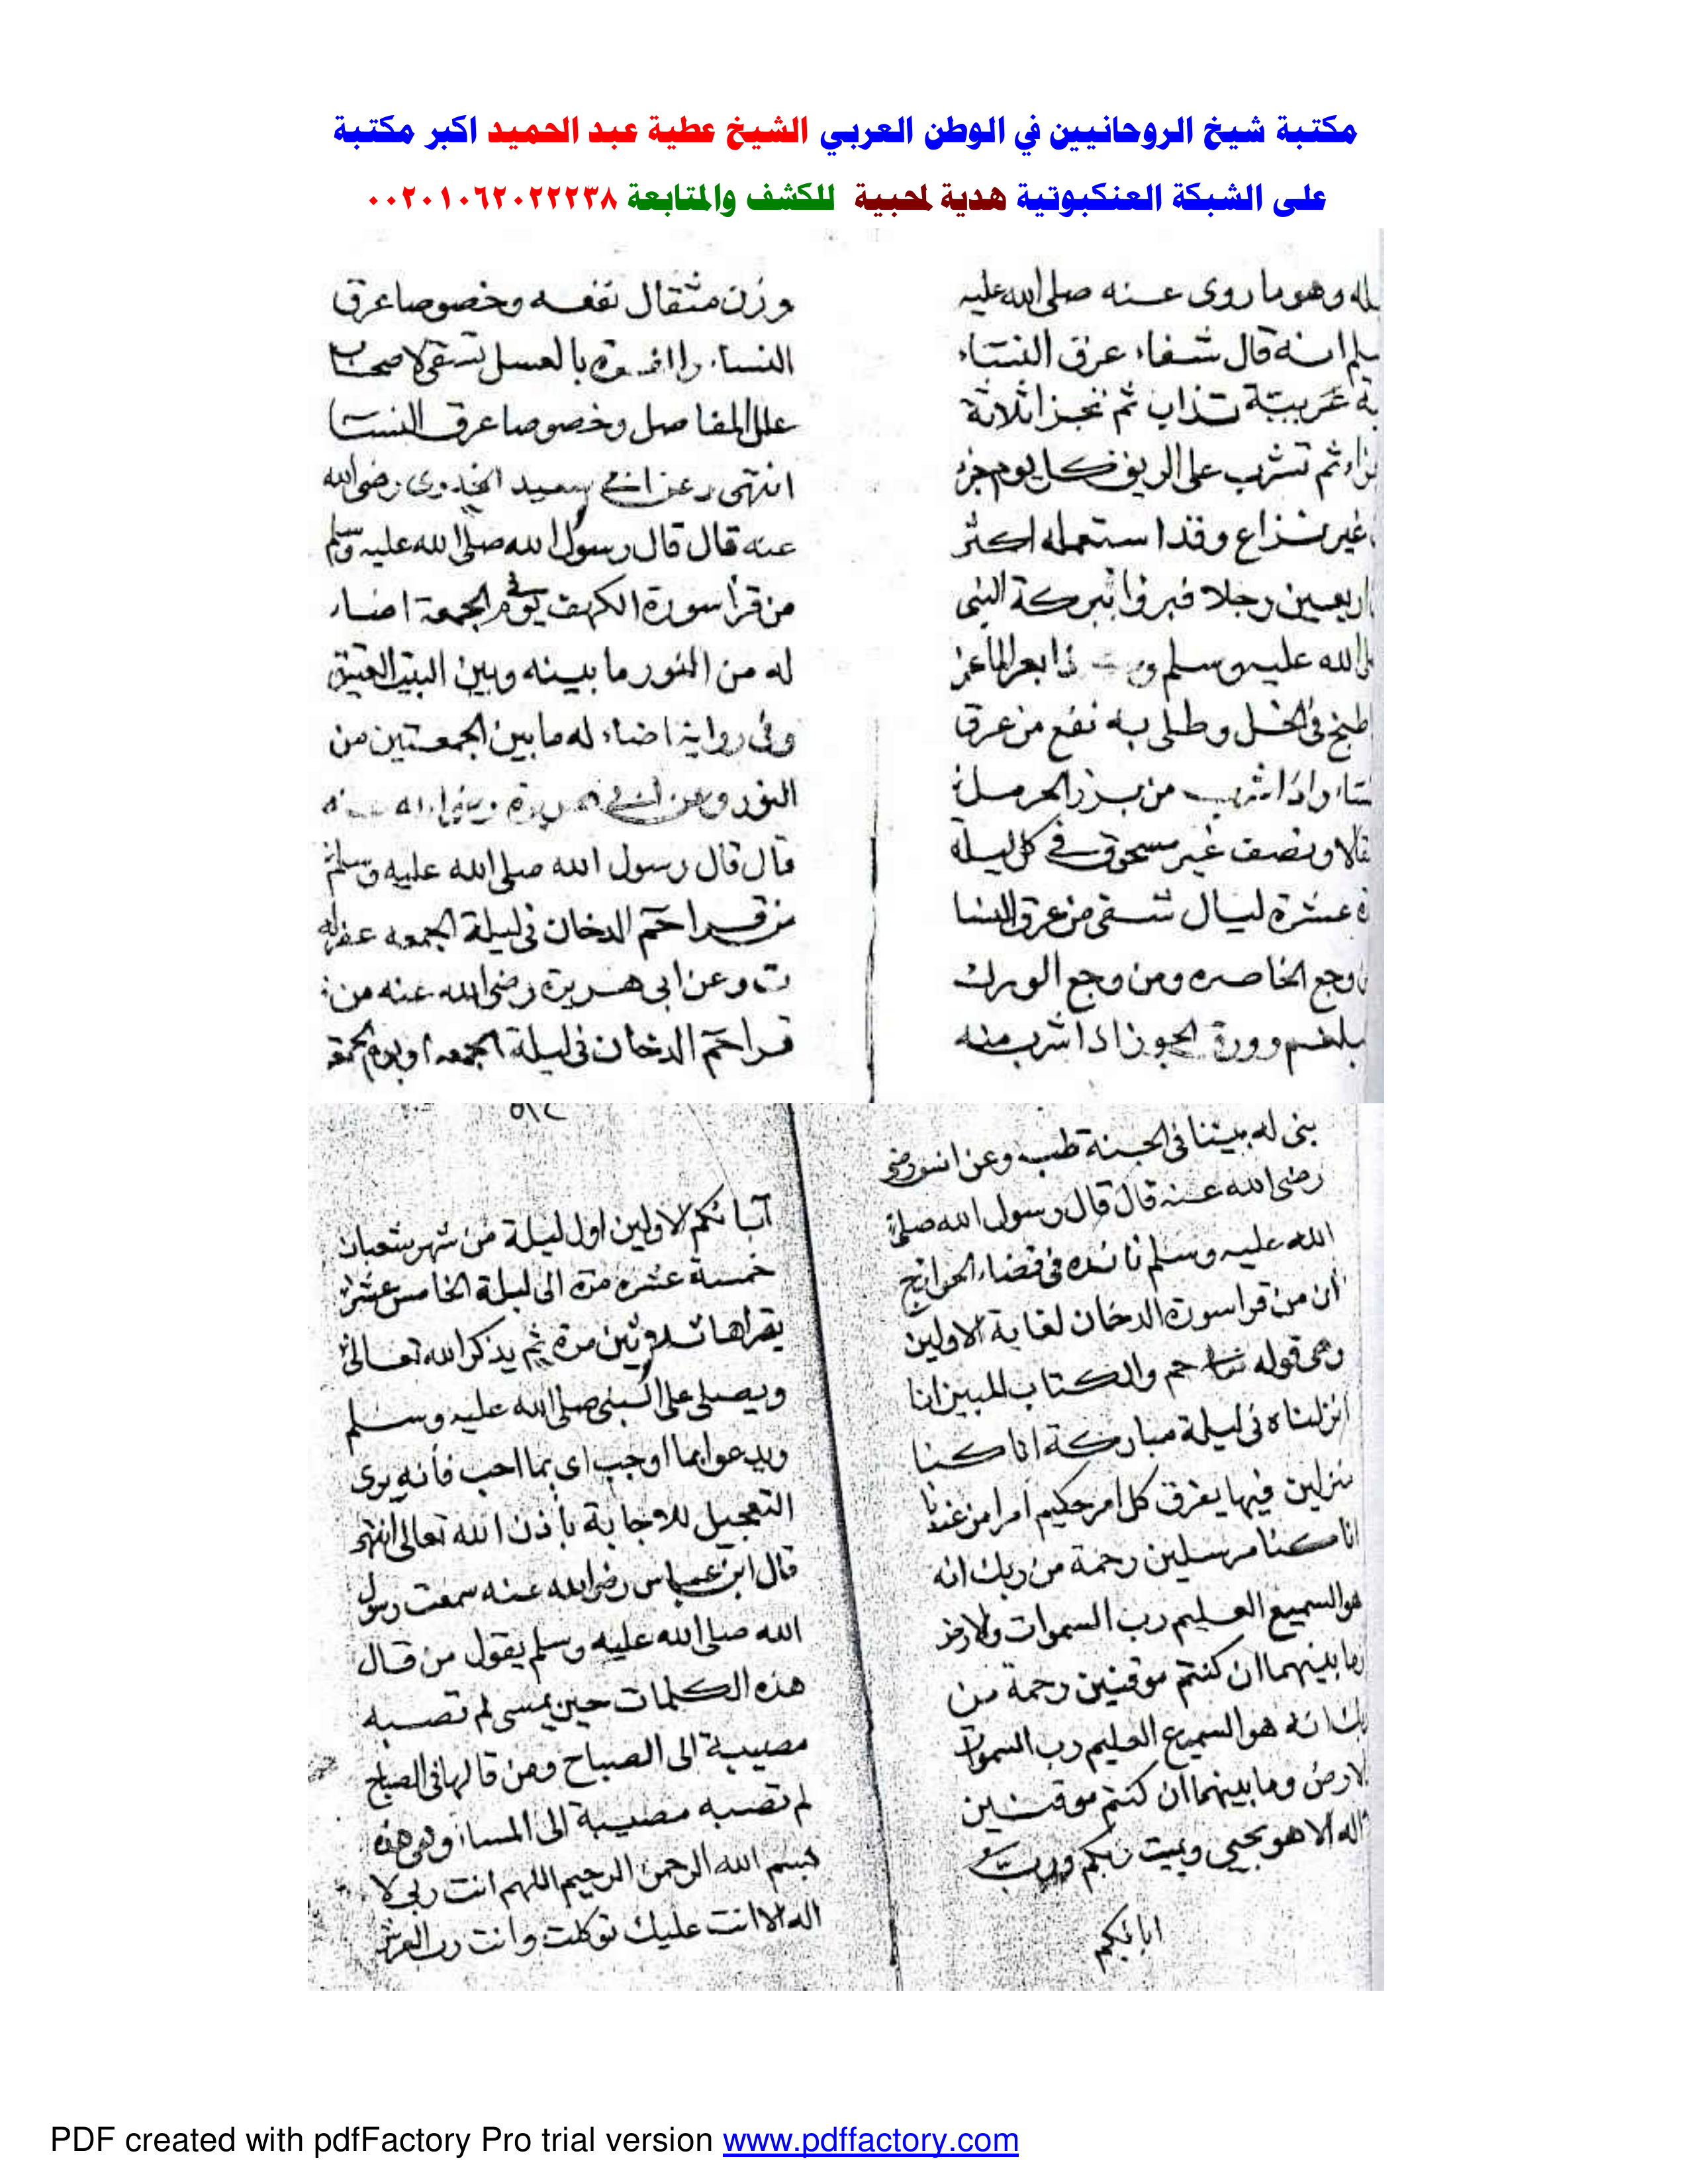 مكتبة شيخ الروحانيين في الوطن العربي الشيخ عطية عبد الحميد اكبر مكتبة
على الشبكة العنكبوتية هدية لمحبية للكشف والمتابعة ٠٠٢٠١٠٦٢٠٢٢٢٣٨
وهو ما روى عنه صلى الله عليه
انه قال شفاء عرق النساء
عربية تذاب ثم تجزا ثلاثة
ثم تشرب على الريق كل يوم جزء
غير نزاع وقد استعمله اكثر
اربعين رجلا فبروا ببركة النبى
الله عليه وسلم بعر الماعز
طبخ فى الخل وطلى به نفع من عرق
واذا شرب من بزر الحرمل
ونصف غير مسحوق فى كل ليلة
عشرة ليال شفى من عرق النسا
وجع الخاصره ومن وجع الورك
الجوز اذا شرب منه
وزن مثقال نفعه وخصوصا عرق
النساء بالعسل تسقى لاصحاب
علل المفاصل وخصوصا عرق النسا
انتهى وعن ابى سعيد الخدرى رضى الله
عنه قال قال رسول الله صلى الله عليه وسلم
من قرأ سورة الكهف فى يوم الجمعة اضاء
له من النور ما بينه وبين البيت العتيق
وفى رواية اضاء له ما بين الجمعتين من
النور وعن ابى هريرة رضى الله عنه
قال قال رسول الله صلى الله عليه وسلم
من قرا حم الدخان فى ليلة الجمعه غفر له
ت وعن ابى هريرة رضى الله عنه من
قرا حم الدخان فى ليلة الجمعه او يوم الجمعة
بنى له بيتا فى الجنة طب وعن انس رضى
رضى الله عنه قال قال رسول الله صلى
الله عليه وسلم فائده فى قضاء الحوائج
ان من قرا سورة الدخان لغاية الاولين
وهى قوله حم والكتاب المبين انا
انزلناه فى ليلة مباركة انا كنا
منزلين فيها يفرق كل امر حكيم امرا من عندنا
انا كنا مرسلين رحمة من ربك انه
هو السميع العليم رب السموات والارض
وما بينهما ان كنتم موقنين رحمة من
ربك انه هو السميع العليم رب السموات
والارض وما بينهما ان كنتم موقنين
اله الا هو يحيى ويميت ربكم ورب
ابائكم
آبائكم الاولين اول ليلة من شهر شعبان
خمسة عشره مرة الى ليلة الخامس عشر
يقراها ثلاثين مرة ثم يذكر الله تعالى
ويصلى على النبى صلى الله عليه وسلم
ويدعوا بما اوجب اى بما احب فانه يرى
التعجيل للاجابة باذن الله تعالى انتهى
قال ابن عباس رضى الله عنه سمعت رسول
الله صلى الله عليه وسلم يقول من قال
هذه الكلمات حين يمسى لم تصبه
مصيبة الى الصباح ومن قالها فى الصباح
لم تصبه مصيبة الى المساء وهى هذه
بسم الله الرحمن الرحيم اللهم انت ربى لا
اله الا انت عليك توكلت وانت رب العرش
PDF created with pdfFactory Pro trial version www.pdffactory.com